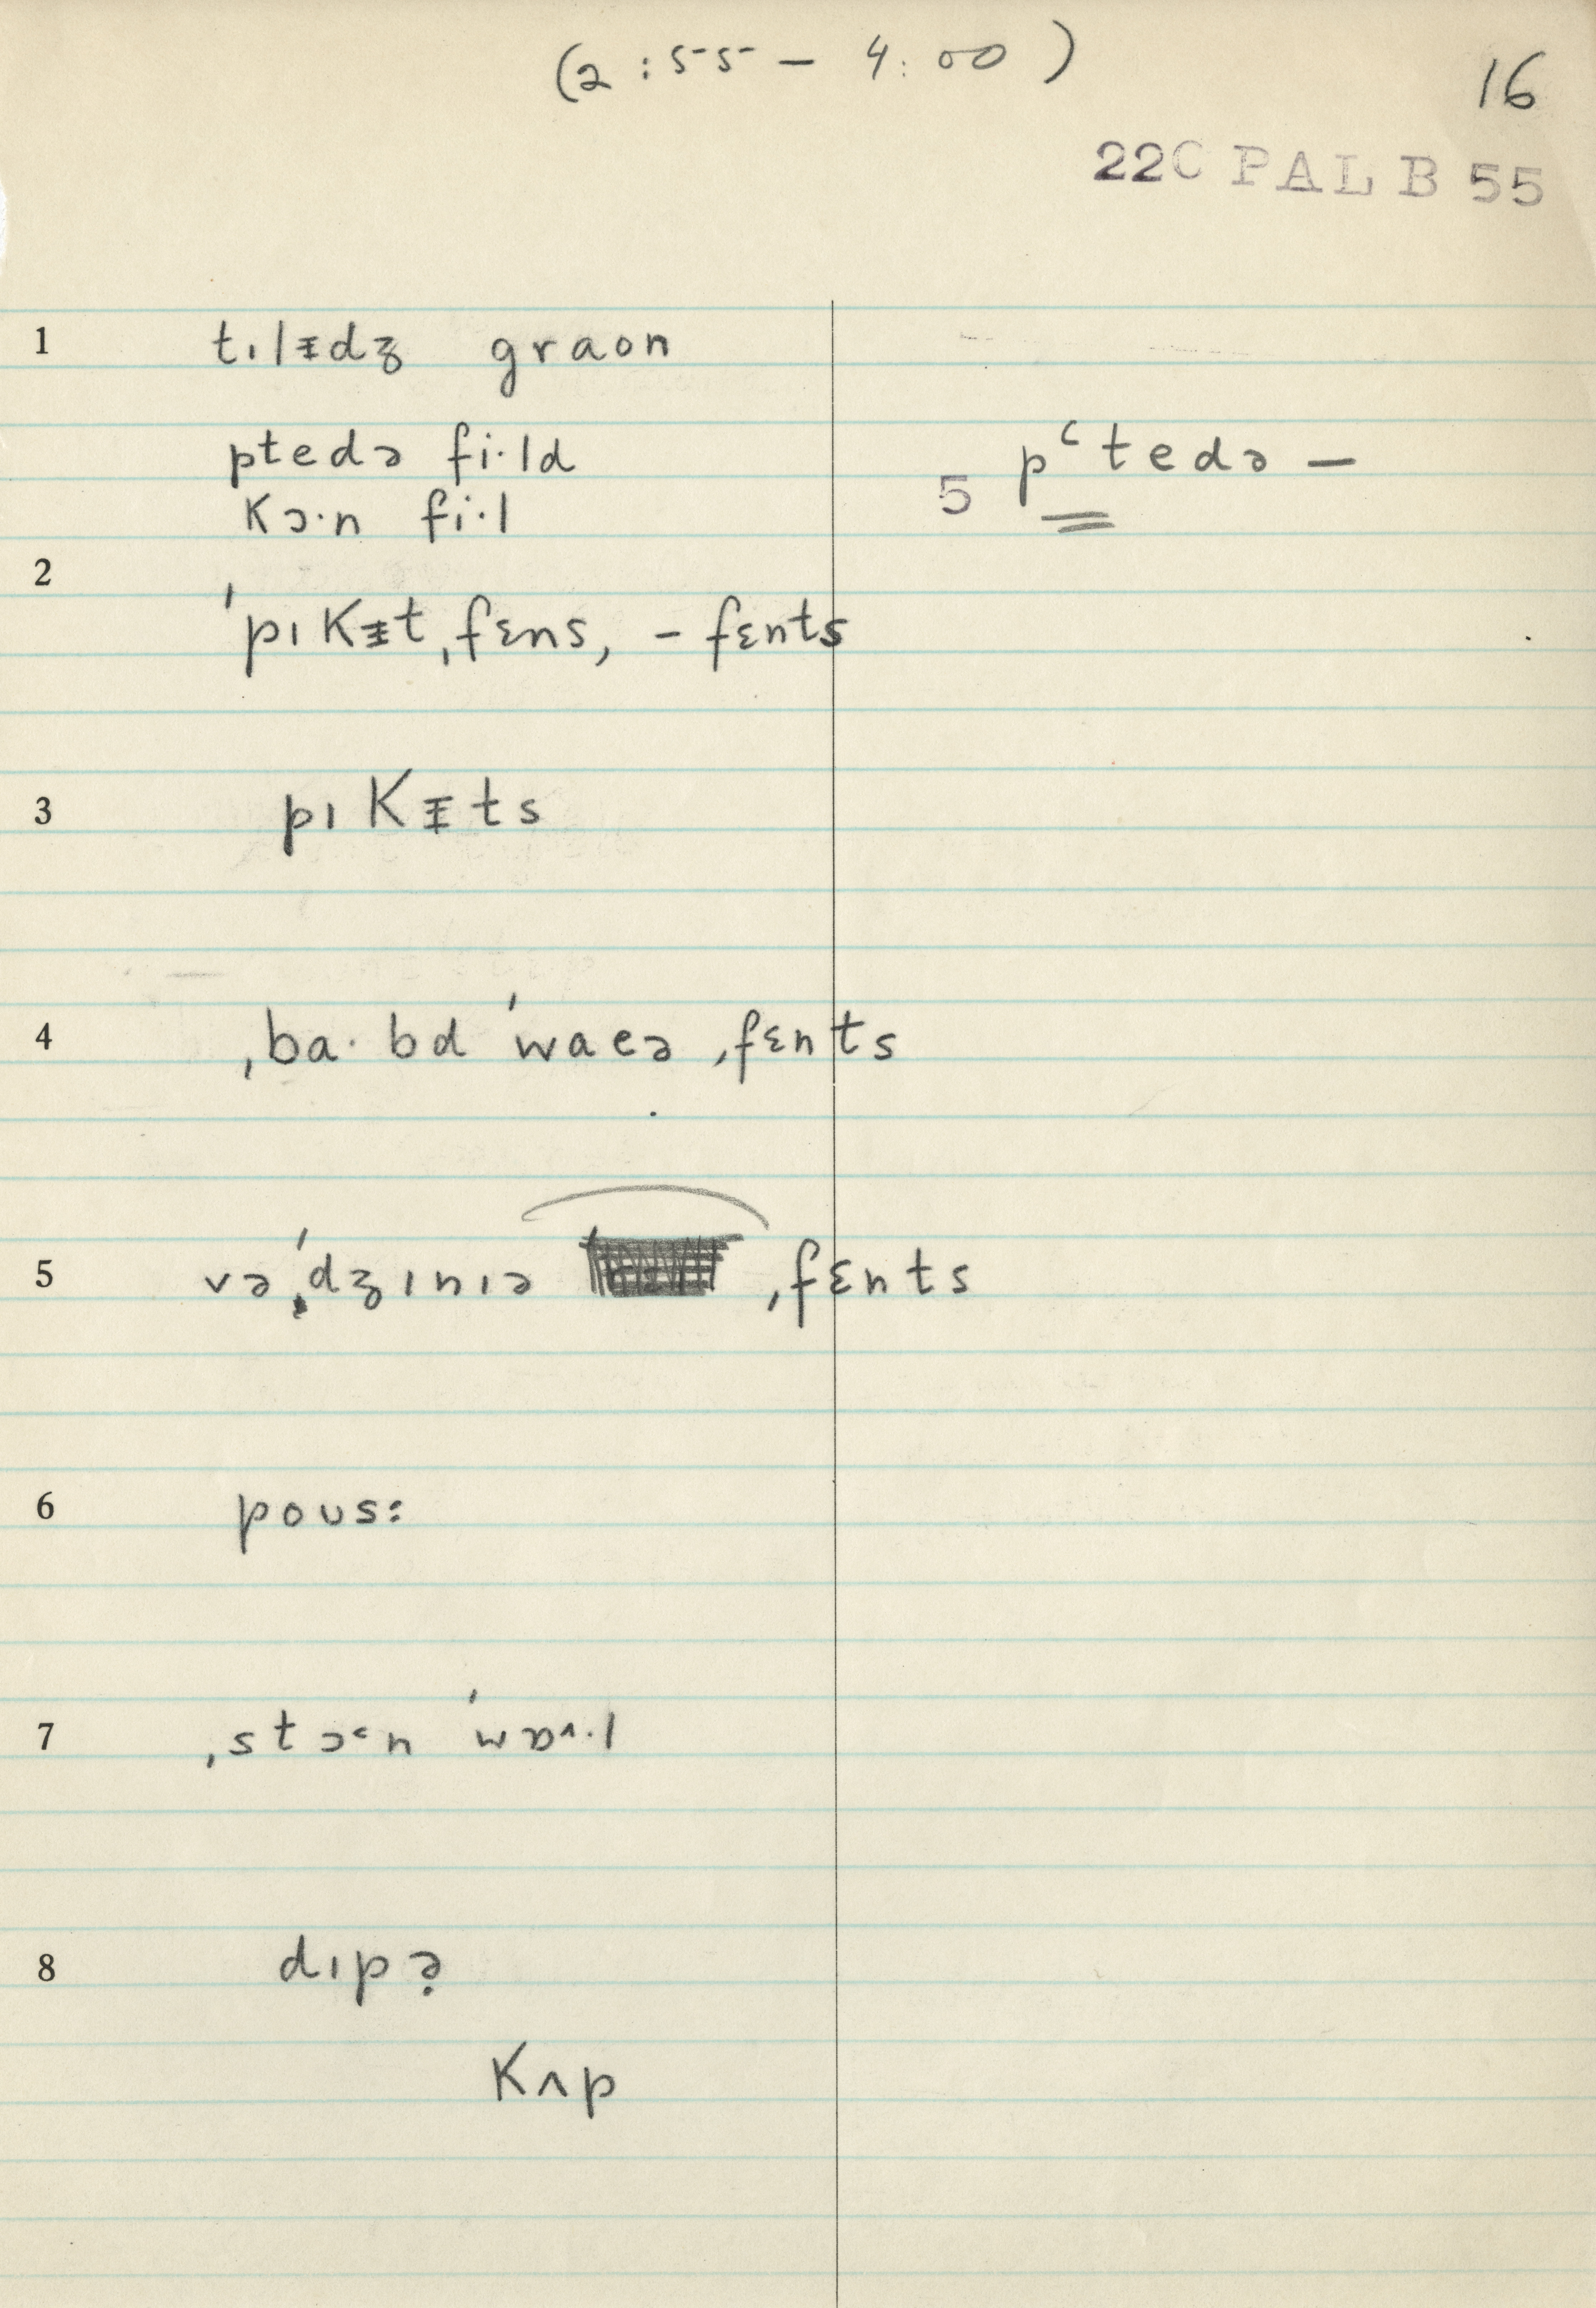 (2:55 – 4:00)
16
22C PAL B 55
1 tɪlᵻdʒ graon
ptedə fi·ld
5 pʿtedə –
kɔ·n fi·l
2 ˈpɪkᵻtˌfɛns, - fɛnts
3 pɪkᵻts
4 ˌba·bd ˈwaeə ˌfɛnts
5 vəˈdʒɪnɪə ˌfɛnts
6 poʊs:
7 ˌstɔ˂n ˈwɒ^·l
8 dɪpə̣
kʌp